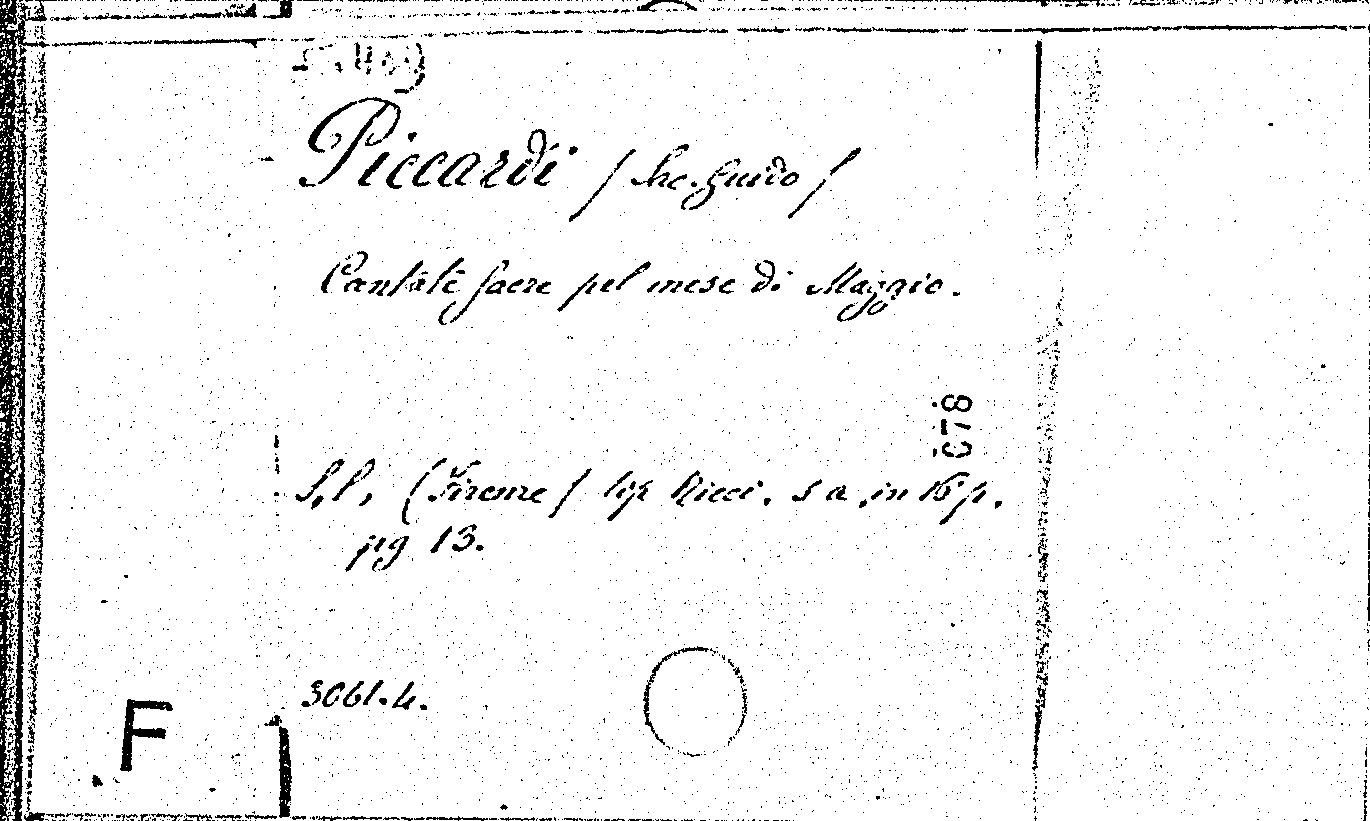 Piccardi / Sac. Guido /
Cantate sacre pel mese di Maggio.
C78
S. l. (Firenze) tip Ricci. s a in 16 p.
pg 13.
3061.4.
F